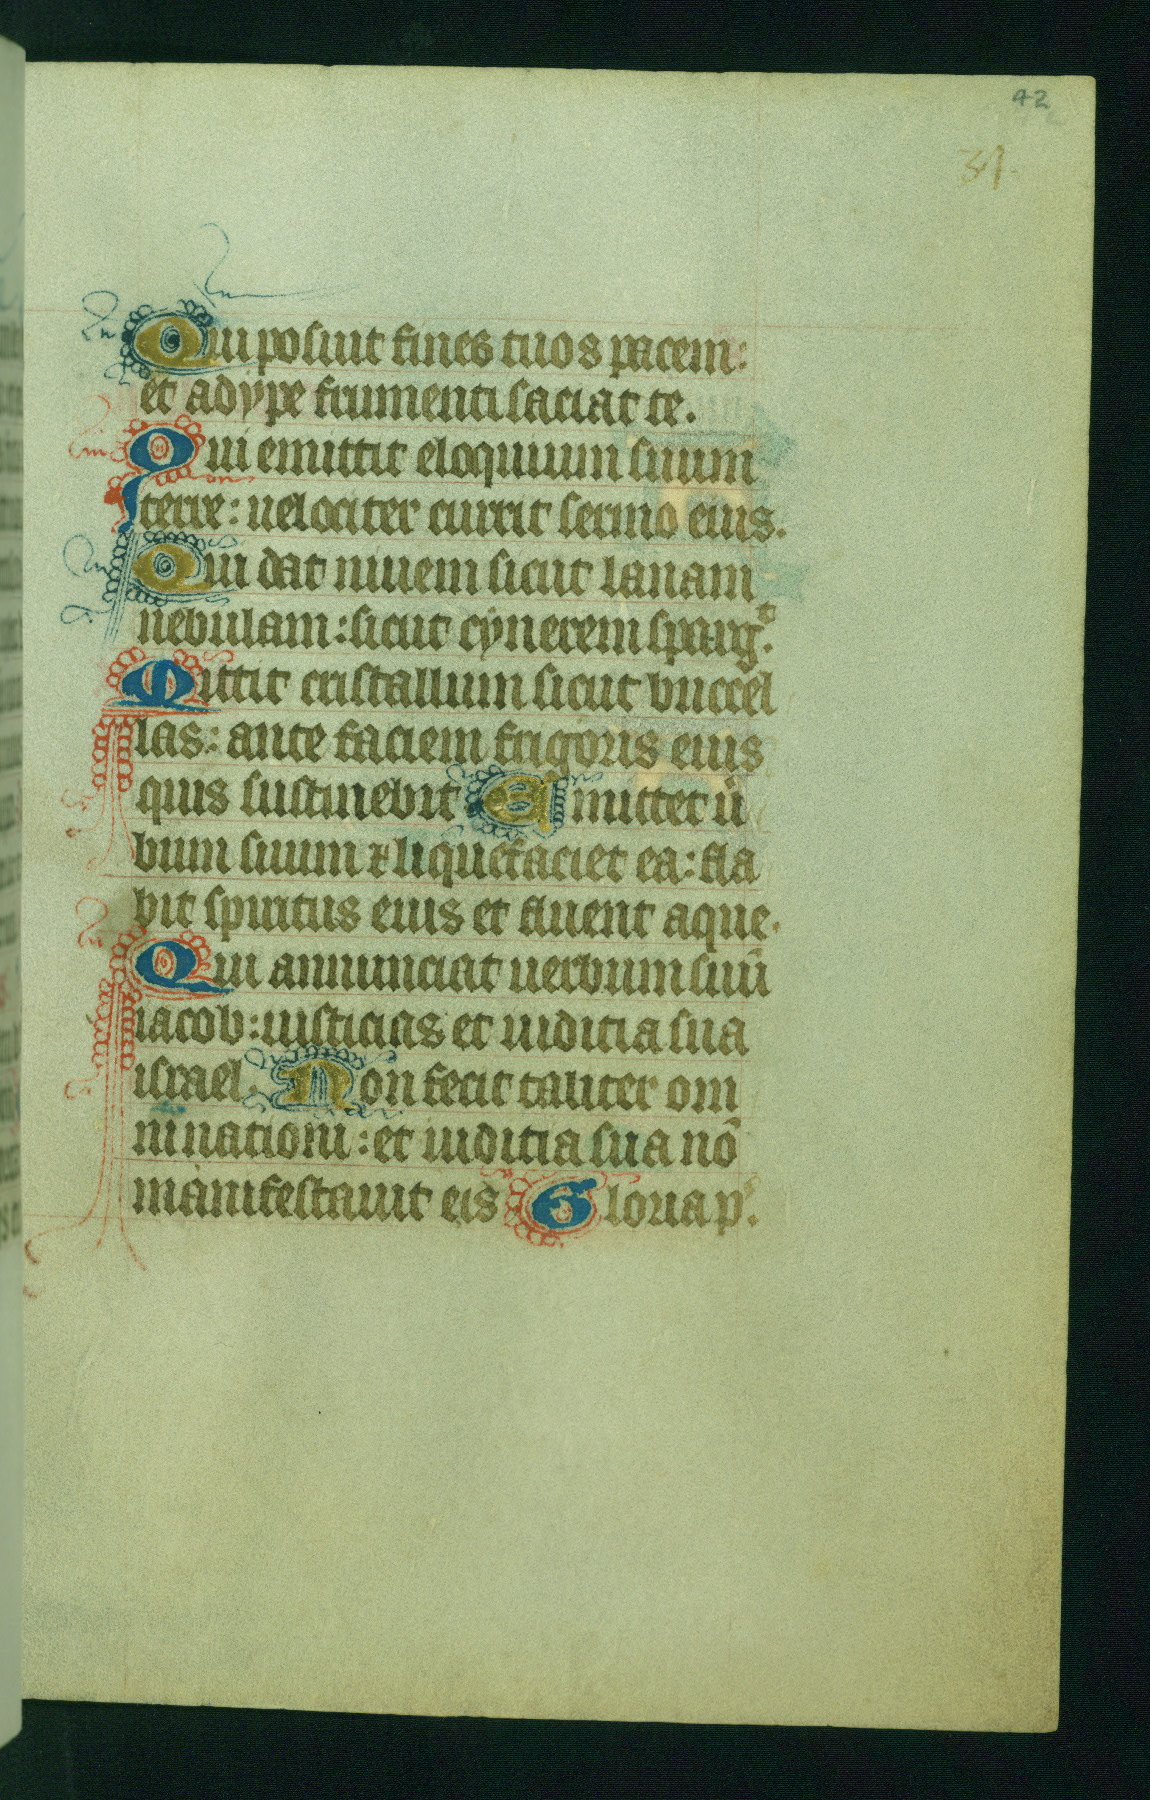 42
31.
Qui posuit fines tuos pacem:
et adype frumenti saciat te.
Qui emittit eloquium suum
terre: uelociter currit sermo eius.
Qui dat niuem sicut lanam
nebulam: sicut cynerem sparg͛t.
Mittit cristallum sicut buccel
las: ante faciem frigoris eius
quis sustinebit Emittet ũ
bum suum ⁊ liquefaciet ea: fla
bit spiritus eius et fluent aque.
Qui annunciat uerbum suũ
iacob: iusticias et iuditia sua
israel. Non fecit taliter om
ni nationi: et iuditia sua nõ
manifestauit eis Gloria ps.